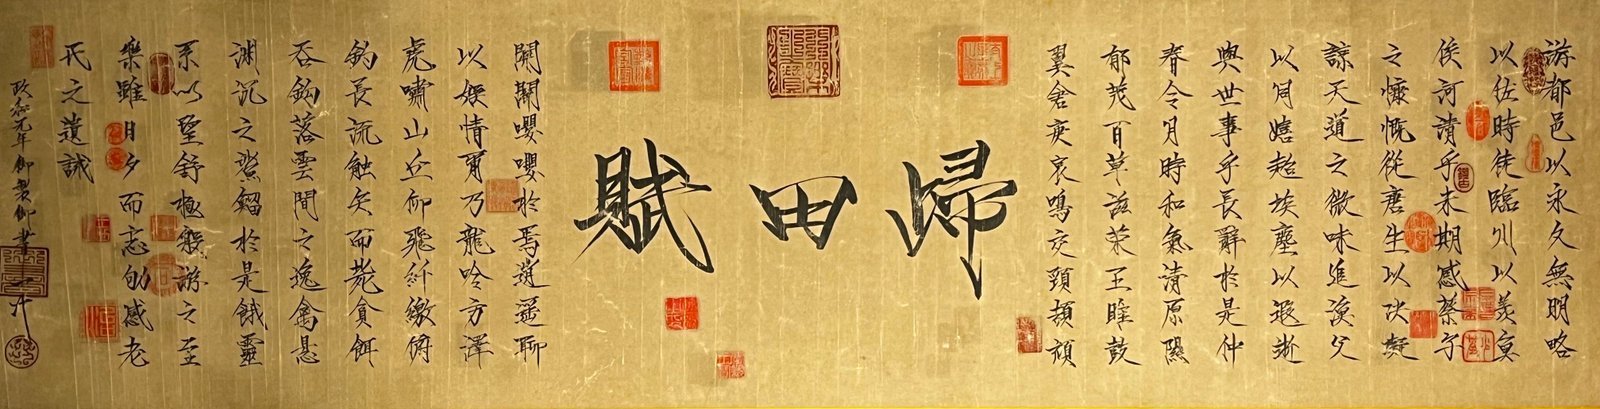 游都邑以永久無明略
以佐時徒臨川以羨魚
俟河清乎未期感蔡子
之慷慨從唐生以決疑
諒天道之微昧追漁父
以同嬉超埃塵以遐逝
與世事乎長辭於是仲
春令月時和氣清原隰
郁茂百草滋榮王雎鼓
翼倉庚哀鳴交頸頡頏
歸田賦
關關嚶嚶於焉逍遥聊
以娱情爾乃龍吟方澤
虎嘯山丘仰飛纤繳俯
釣長流触矢而斃貪餌
吞鈎落雲間之逸禽悬
渊沉之鯊鰡於是餓靈
系以望舒極般游之至
樂雖日夕而忘劬感老
氏之遺誡
政和元年御製御書